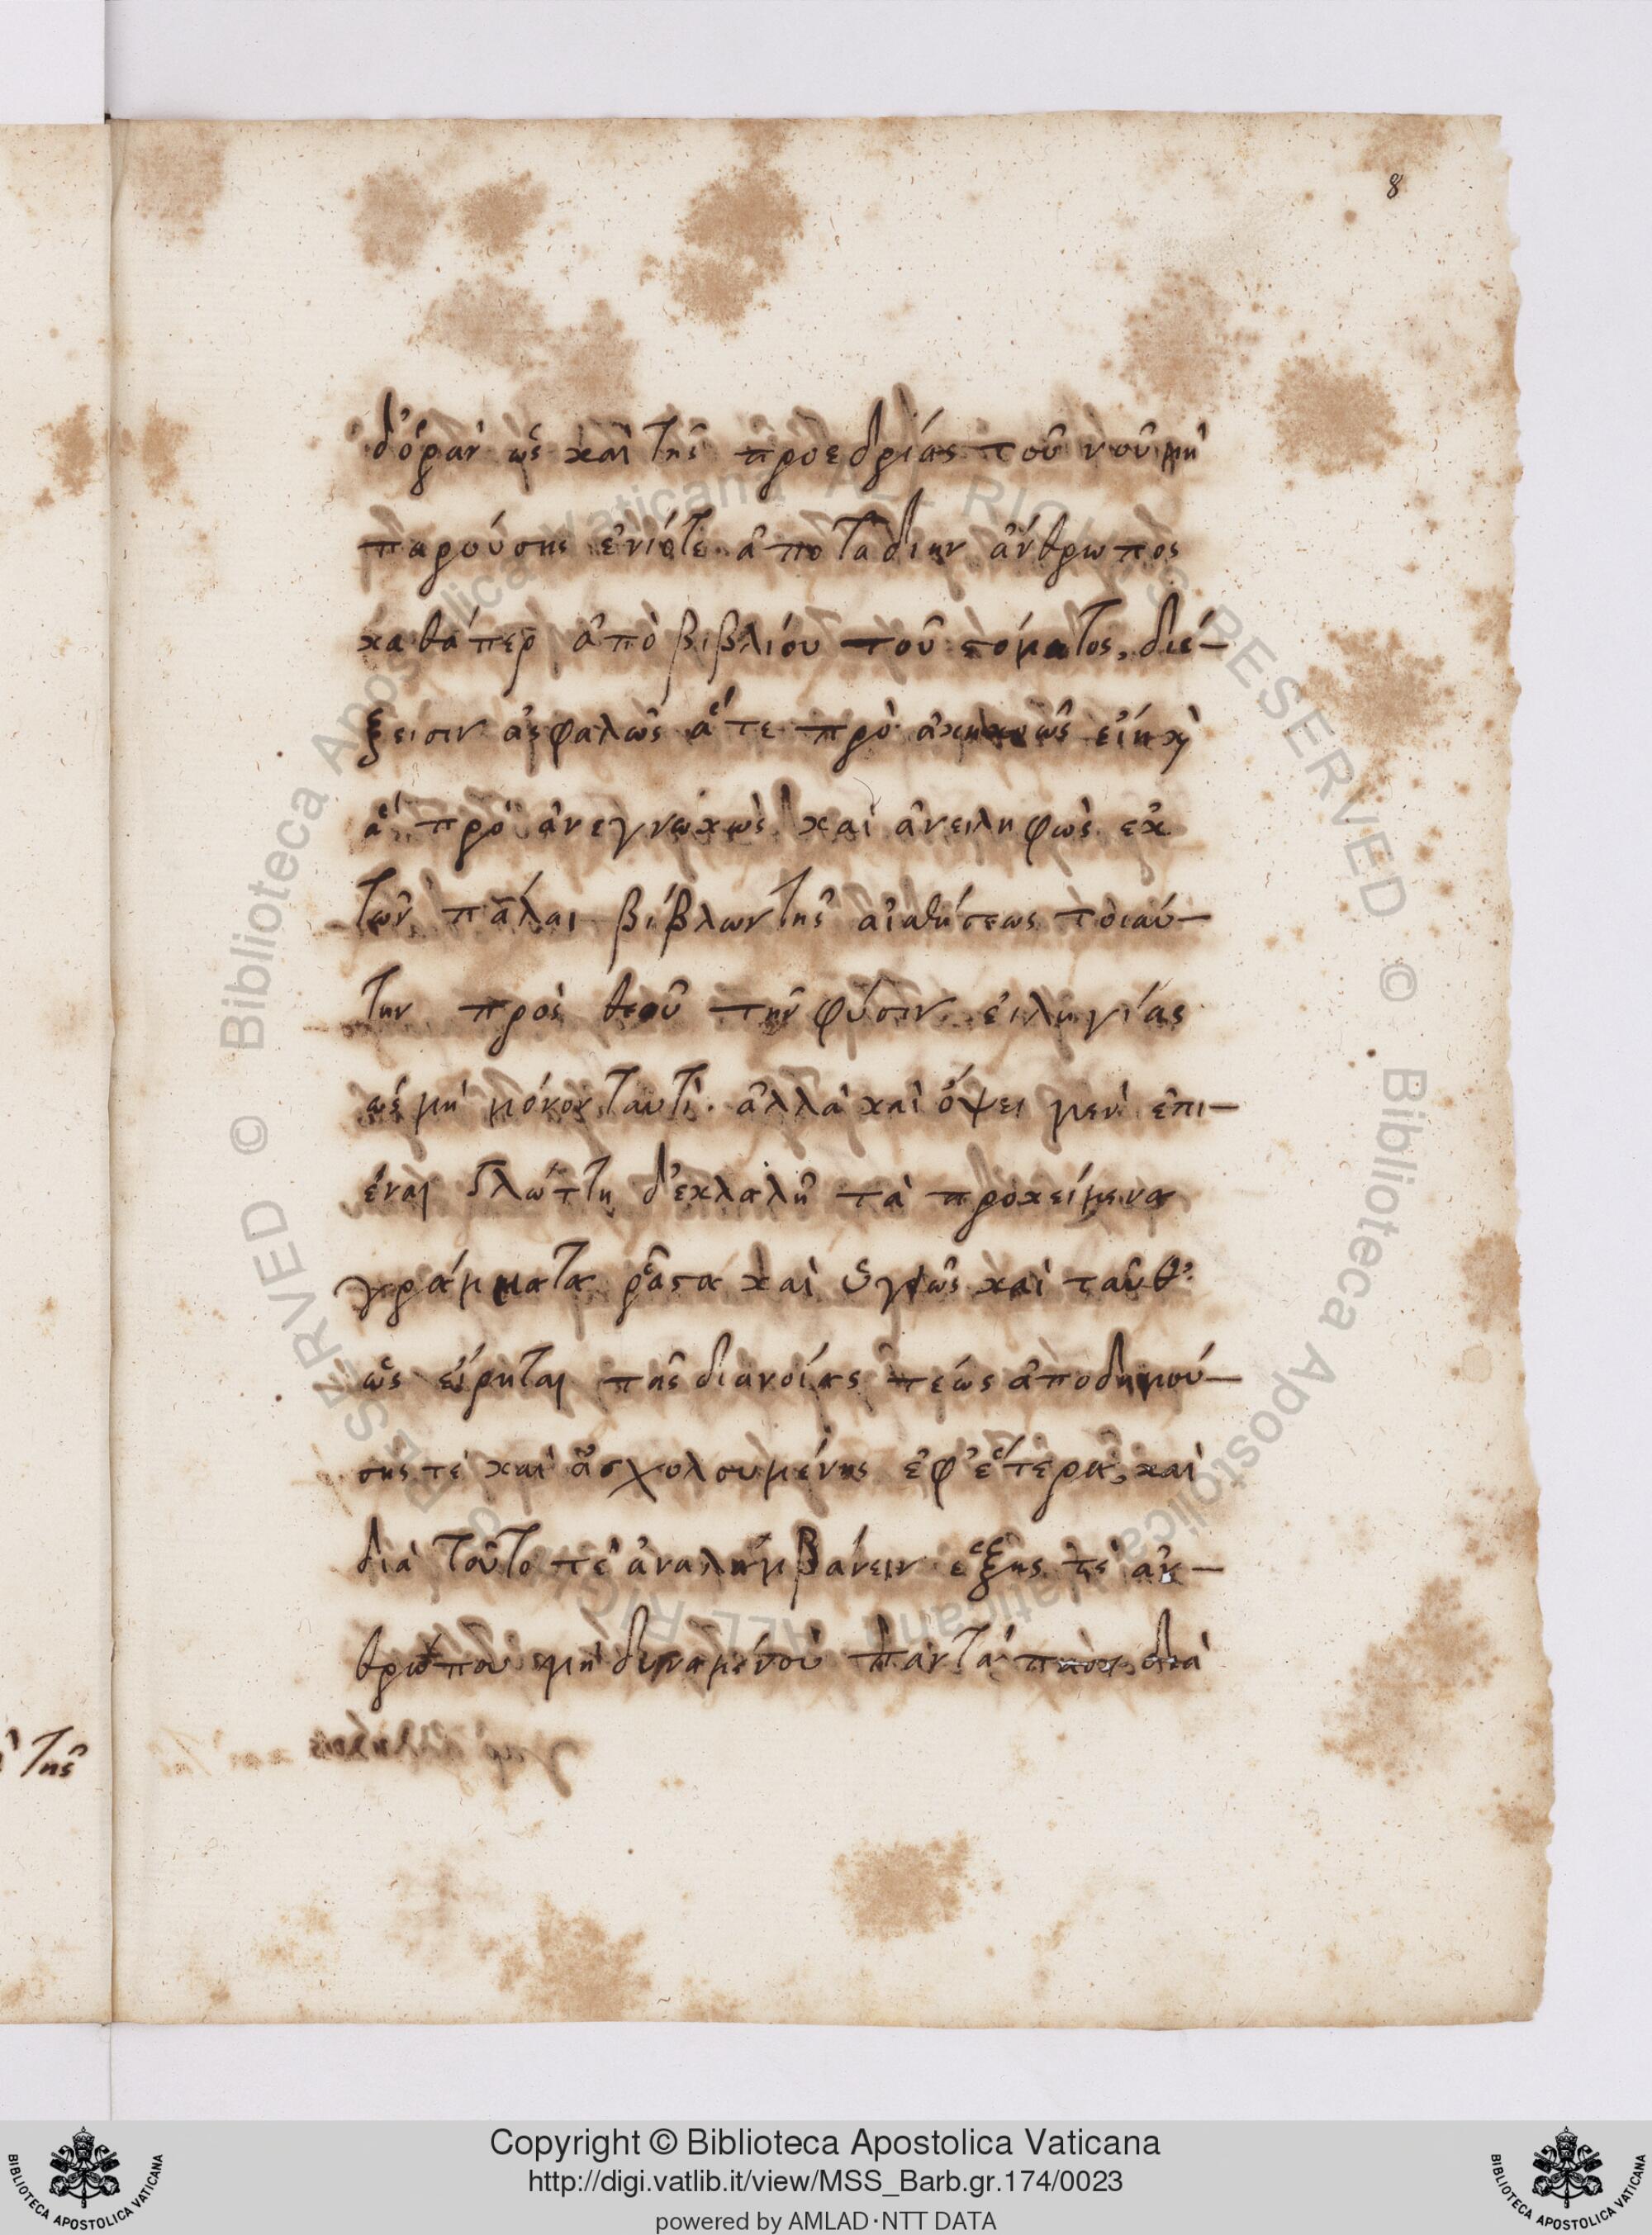 8
δόραν ὡς καὶ τῆς προεδρίας τοῦ νοῦ μὴ
παρούσης ἐνίοτε ἀποτάδην ἄνθρωπος
καθάπερ ἀπὸ βιβλίου τοῦ στόματος, διέ-
ξεισιν ἀσφαλῶς ἅ τε προ
ἅ προ ἀνεγνωκὼς καὶ ἀνειληφὼς ἐκ
τῶν πάλαι βίβλων τῆς αἰσθήσεως τοιαύ-
την πρὸς θεοῦ τὴν φύσιν
ὡς μὴ μόνον ταυτὶ. ἀλλὰ καὶ ὄψει μὲν ἐπι-
έναι γλώττῃ δ' ἐκλαλῆ τὰ προκείμενα
γράμματα ῥᾷστα καὶ ὑγιῶς καὶ ταῦθ'
ὡς εἴρηται τῆς διανοίας τέως ἀποδημού-
σης τὲ καὶ ἀσχολουμένης ἐφ' ἕτερα, καὶ
διὰ τοῦτο τὲ ἀναλαμβάνειν ἑξῆς τὲ ἀν-
θρώπου μὴ δυναμένου παντάπασι διὰ
τῆς
Copyright © Biblioteca Apostolica Vaticana
http://digi.vatlib.it/view/MSS_Barb.gr.174/0023
powered by AMLAD·NTT DATA
BIBLIOTECA APOSTOLICA VATICANA
BIBLIOTECA APOSTOLICA VATICANA
© Biblioteca Apostolica Vaticana ALL RIGHTS RESERVED © Biblioteca Apostolica Vaticana ALL RIGHTS RESERVED